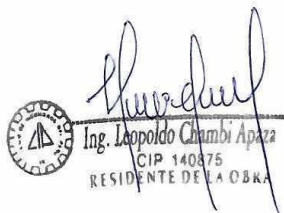 Ing. Leopoldo Chambi Apaza
CIP 140875
RESIDENTE DE LA OBRA